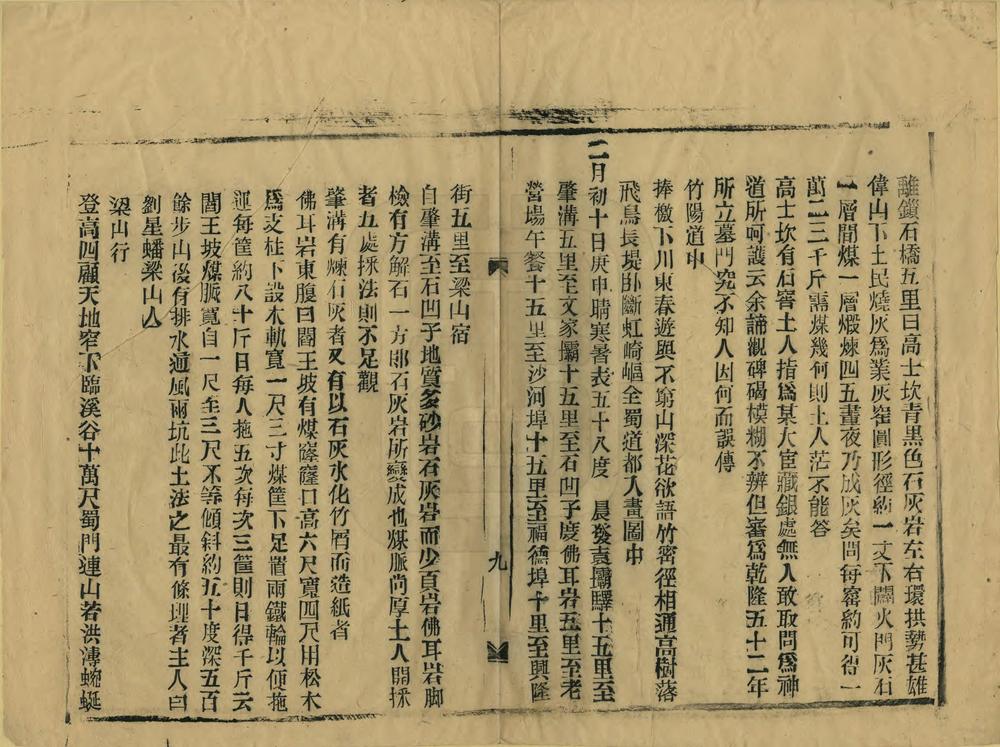 離鎖石橋五里曰高士坎青黑色石灰岩左右環拱勢甚雄
偉山下土民燒灰爲業灰窑圓形徑約一丈下闢火門灰石
一層間煤一層煅煉四五晝夜乃成灰矣問每窰約可得一
萬二三千斤需煤幾何則土人茫不能答
高士坎有石窖土人指爲某大宦藏銀處無人敢取問爲神
道所呵護云余諦觀碑碣模糊不辨但審爲乾隆五十二年
所立墓門究不知人因何而誤傳
竹陽道中
捧檄下川東春遊興不窮山深花欲語竹密徑相通高樹落
飛鳥長堤臥斷虹崎嶇全蜀道都入畫圖中
二月初十日庚申晴寒暑表五十八度 晨發袁壩驛十五里至
肇溝五里至文家壩十五里至石凹子度佛耳岩五里至老
營場午餐十五里至沙河埠十五里至福德埠十里至興隆
九
街五里至梁山宿
自肇溝至石凹子地質多砂岩石灰岩而少頁岩佛耳岩脚
檢有方解石一方卽石灰岩所變成也煤脈尚厚土人開採
者五處採法則不足觀
肇溝有煉石灰者又有以石灰水化竹屑而造紙者
佛耳岩東腹曰閻王坡有煤窿窿口高六尺寬四尺用松木
爲支柱下設木軌寬一尺三寸煤筐下足置兩鐵輪以便拖
運每筐約八十斤日每人拖五次每次三筐則日得千斤云
閻王坡煤脈寬自一尺至三尺不等傾斜約五十度深五百
餘步山後有排水通風兩坑此土法之最有條理者主人曰
劉星蟠梁山人
梁山行
登高四顧天地窄下臨溪谷十萬尺蜀門連山若洪濤蜿蜒